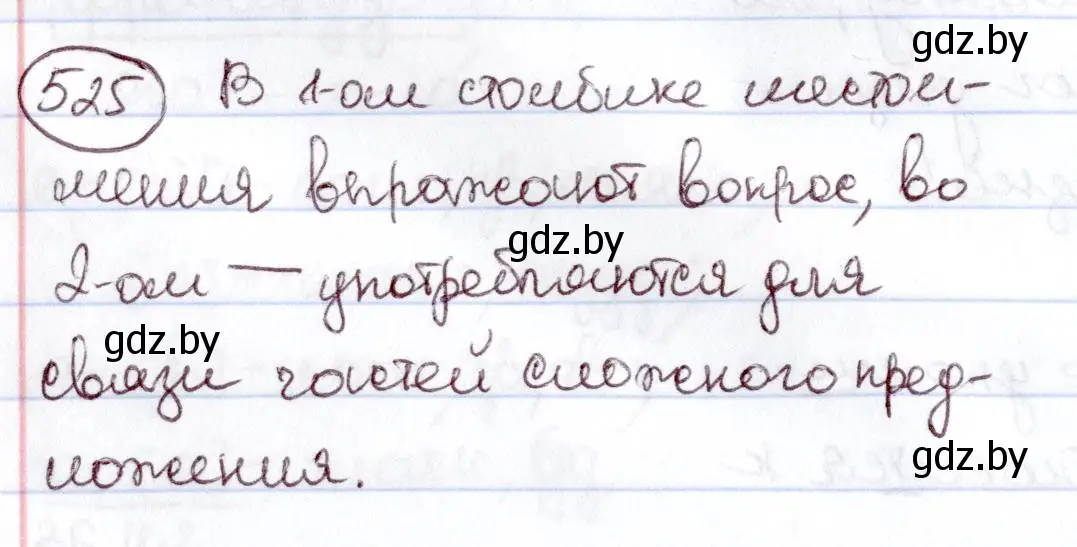 gdz.by
525 В 1-ом столбике местои-
мения выражают вопрос, во
gdz.by
2-ом — употребляются для
gdz.by
связи частей сложного пред-
ложения.
gdz.by